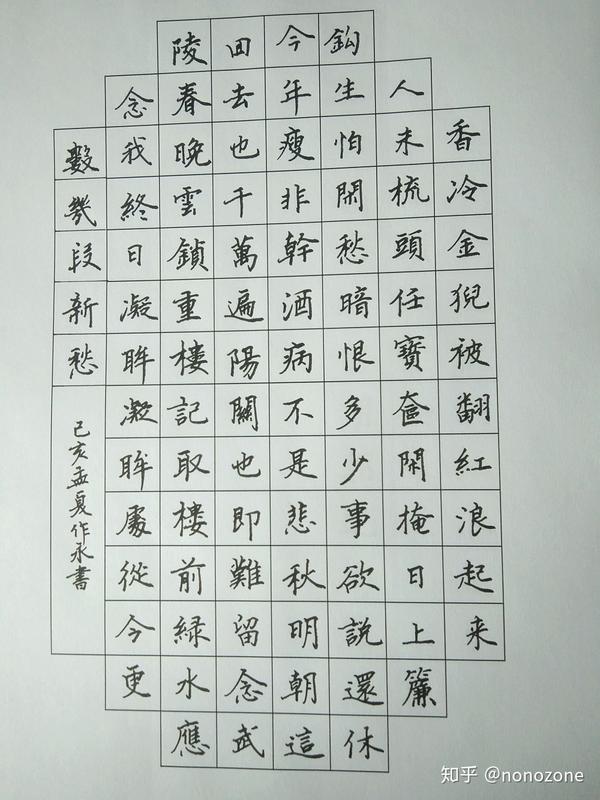 香冷金猊被翻紅浪起来
人未梳頭任寶奩閑掩日上簾
鈎生怕閑愁暗恨多少事欲說還休
今年瘦非幹酒病不是悲秋明朝這
回去也千萬遍陽關也即難留念武
陵春晚雲鎖重樓記取樓前緑水應
念我終日凝眸凝眸處從今更
數幾段新愁
己亥孟夏作永書
知乎 @nonozone